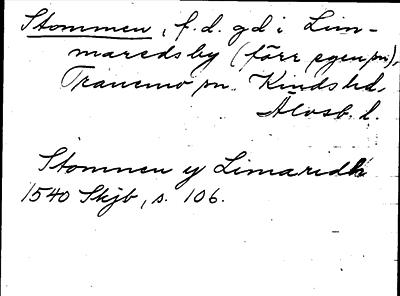 Stommen, f.d. gd i Lim-
maredsby (förr egen sn),
Tranemo sn. Kinds hd,
Älvsb. l.
Stomnen y Limaridh
1540 Skjb, s. 106.